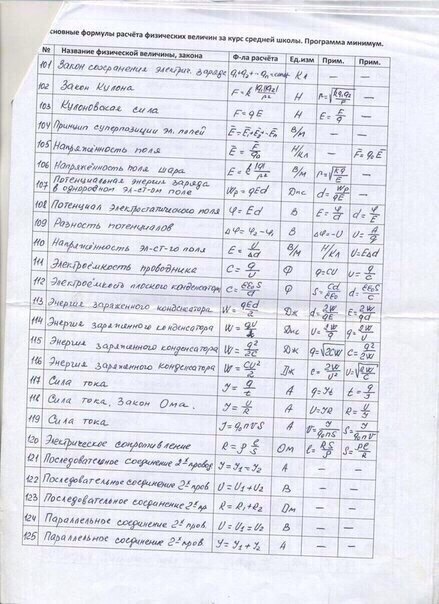 сновные формулы расчёта физических величин за курс средней школы. Программа минимум.
№ Название физической величины, закона Ф-ла расчёта Ед.изм Прим. Прим.
101 Закон сохранения электрич. заряда q₁+q₂+...qₙ=const Кл — —
102 Закон Кулона F=k |q₁q₂|/r² Н r=√(kq₁q₂/F) —
103 Кулоновская сила F=qE Н E=F/q —
104 Принцип суперпозиции эл. полей E̅=E̅₁+E̅₂+..E̅ₙ В/м — —
105 Напряжённость поля E̅=F̅/q₀ Н/Кл — F̅=q₀E̅
106 Напряжённость поля шара E=k |q|/r² В/м r=√(kq/E) —
107 Потенциальная энергия заряда в однородном эл-ст-ом поле Wp=qEd Дж d=Wp/qE —
108 Потенциал электростатического поля φ=Ed В E=φ/d d=φ/E
109 Разность потенциалов Δφ=φ₂-φ₁ В Δφ=-U U=A/q
110 Напряжённость эл-ст-го поля E=U/Δd В/м Н/Кл U=EΔd
111 Электроёмкость проводника C=q/U Ф q=CU U=q/C
112 Электроёмкость плоского конденсатора C=εε₀S/d Ф S=Cd/εε₀ d=εε₀S/C
113 Энергия заряженного конденсатора W=qEd/2 Дж d=2W/qE E=2W/qd
114 Энергия заряженного конденсатора W=qU/2 Дж U=2W/q q=2W/U
115 Энергия заряженного конденсатора W=q²/2C Дж q=√2CW C=q²/2W
116 Энергия заряженного конденсатора W=CU²/2 Дж C=2W/U² U=√(2W/C)
117 Сила тока I=q/t А q=It t=q/I
118 Сила тока. Закон Ома. I=U/R А U=IR R=U/I
119 Сила тока I=q₀nVS А V=I/q₀nS S=I/q₀nV
120 Электрическое сопротивление R=ρ ℓ/S Ом ℓ=RS/ρ S=ρℓ/R
121 Последовательное соединение 2ˣ провод I=I₁=I₂ А — —
122 Последовательное соединение 2ˣ пров. U=U₁+U₂ В — —
123 Последовательное соединение 2ˣ пр R=R₁+R₂ Ом — —
124 Параллельное соединение 2ˣ пров. U=U₁=U₂ В — —
125 Параллельное соединение 2ˣ пров. I=I₁+I₂ А — —